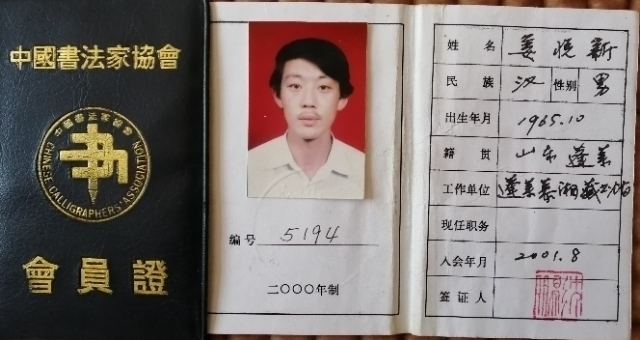 中國書法家協會
中國書法家協會
CHINESE CALLIGRAPHERS ASSOCIATION
會員證
编号 5194
二〇〇〇年制
姓名 姜悦新
民族 汉 性别 男
出生年月 1965.10
籍贯 山东 蓬莱
工作单位 蓬莱慕湘藏书馆
现任职务
入会年月 2001.8
签证人